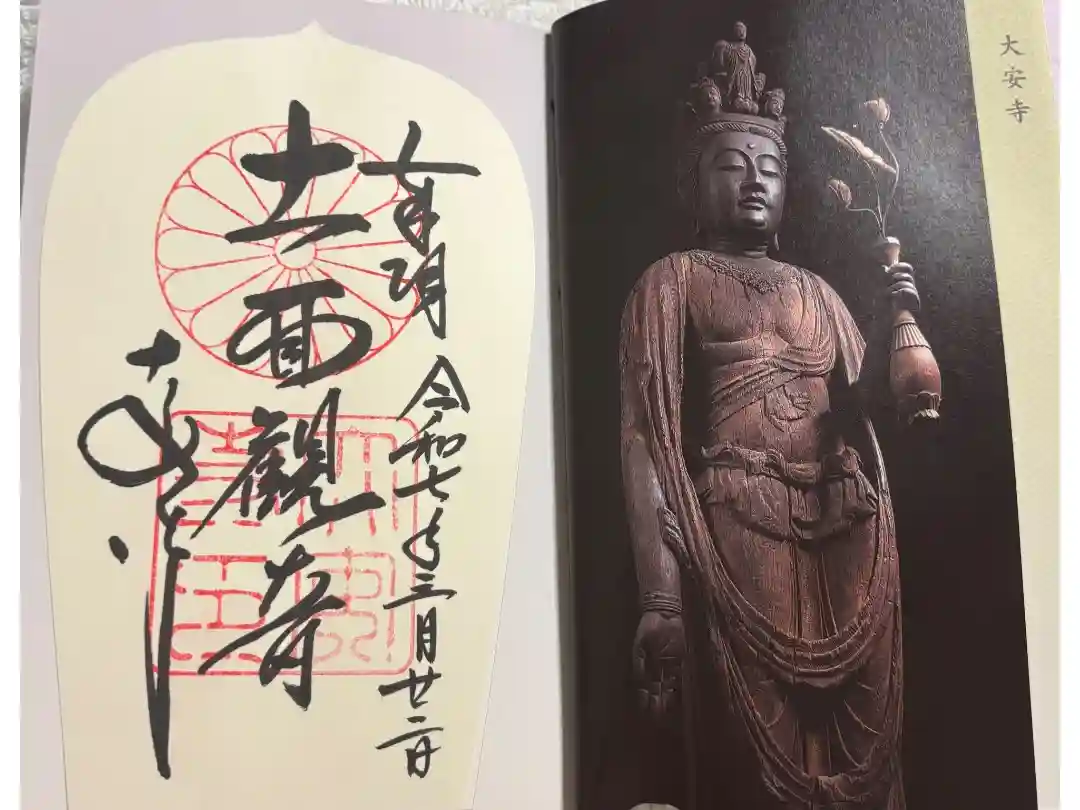 大安寺
令和七年三月廿二日
十一面觀音
大安寺